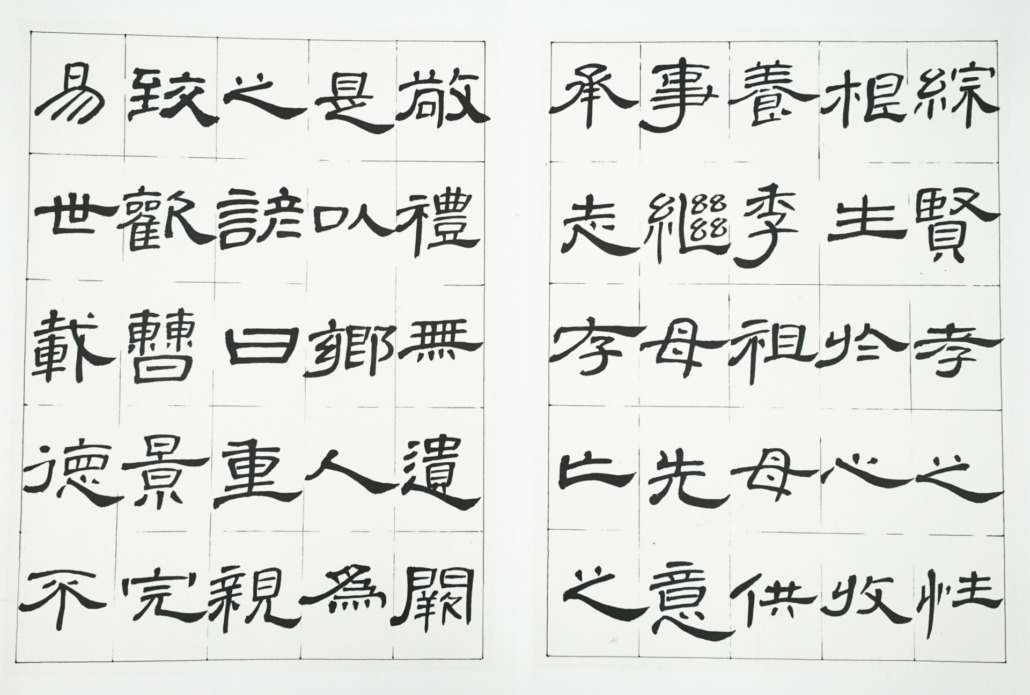 綜賢孝之性
根生於心收
養季祖母供
事繼母先意
承志存亡之
敬禮無遺闕
是以鄉人爲
之諺曰重親
致歡曹景完
易世載德不